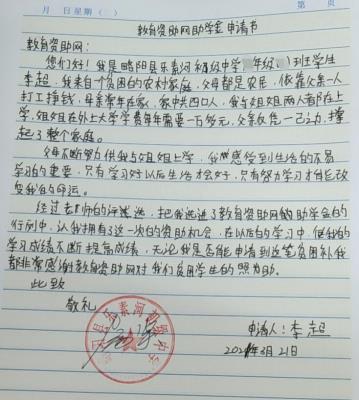 月 日 星期( ) 第 页
教育资助网助学金申请书
教育资助网:
您们好!我是略阳县乐素河初级中学 年级( )班学生
李超,我来自个贫困的农村家庭,父母都是农民,依靠父亲一人
打工挣钱,母亲常年在家,家中共四口人,我与姐姐两人都在上
学,姐姐在外上大学学费每年需要一万多元,父亲仅凭一己之力,撑
起了整个家庭。
父母不断努力供我与姐姐上学,我 感受到生活的不易
学习的重要,只有学习好以后生活才会好,只有努力学习才能改
变我的命运。
经过老师的 选,把我选进了教育资助网的助学金的
行列中,认我拥有了这一次的资助机会,在以后的学习中,使我的
学习成绩不断提高成绩,无论我是否能申请到这笔贫困补 我
都非常感谢教育资助网对我们贫困学生的照 力助。
此致
敬礼
申请人:李超
2021年3月21日
乐素河初级中学